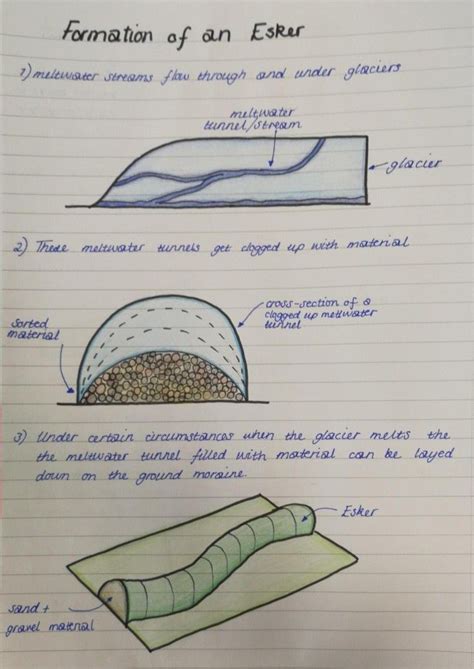 Formation of an Esker
1) meltwater streams flow through and under glaciers
meltwater
tunnel/stream
glacier
2) These meltwater tunnels get clogged up with material
cross-section of a
clogged up meltwater
tunnel
sorted
material
3) Under certain circumstances when the glacier melts the
the meltwater tunnel filled with material can be layed
down on the ground moraine.
Esker
sand +
gravel material